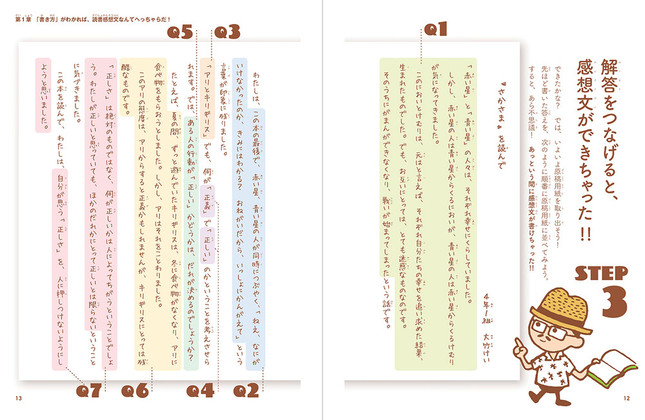 解答をつなげると、
感想文ができちゃった!!
できたかな? では、いよいよ原稿用紙を取り出そう!
先ほど書いた答えを、次のように順番に原稿用紙に並べてみよう。
すると、あら不思議! あっという間に感想文が書けちゃった!!
STEP
3
Q1
『さかさま』を読んで
4年1組 大竹けい
「赤い星」と「青い星」の人々は、それぞれ幸せにくらしていました。
しかし、赤い星の人は青い星からくるにおいが、青い星の人は赤い星からくるけむり
が気になってきました。
このにおいとけむりは、元はと言えば、それぞれ自分たちの幸せを追い求めた結果、
生まれたものでした。でも、お互いにとっては、とても迷惑なものなのです。
そのうちにがまんができなくなり、戦いが始まってしまったという話です。
12
第1章 「書き方」がわかれば、読書感想文なんてへっちゃらだ!
Q3
Q5
わたしは、この本の最後で、赤い星、青い星の人が同時につぶやく、「ねえ、なにが
いけなかったのか、きみにはわかる? おねがいだから、いっしょにかんがえて」という
言葉が印象に残りました。
『アリとキリギリス』でも、何が「正義」で「正しい」のかということを考えさせら
れます。では、ある人の行動が「正しい」かどうかは、だれが決めるのでしょうか?
たとえば、夏の間、ずっと遊んでいたキリギリスは、冬に食べ物がなくなり、アリに
食べ物をもらおうとしました。しかし、アリはそれをことわりました。
このアリの態度は、アリからすると正義かもしれませんが、キリギリスにとっては残
酷なものです。
「正しさ」は絶対のものではなく、何が正しいかは人によってちがうということでしょ
う。わたしが正しいと思っていても、ほかのだれかにとって正しいとは限らないということ
に気づきました。
この本を読んで、わたしは、自分が思う「正しさ」を、人に押しつけないようにし
ようと思いました。
Q2
Q4
Q6
Q7
13